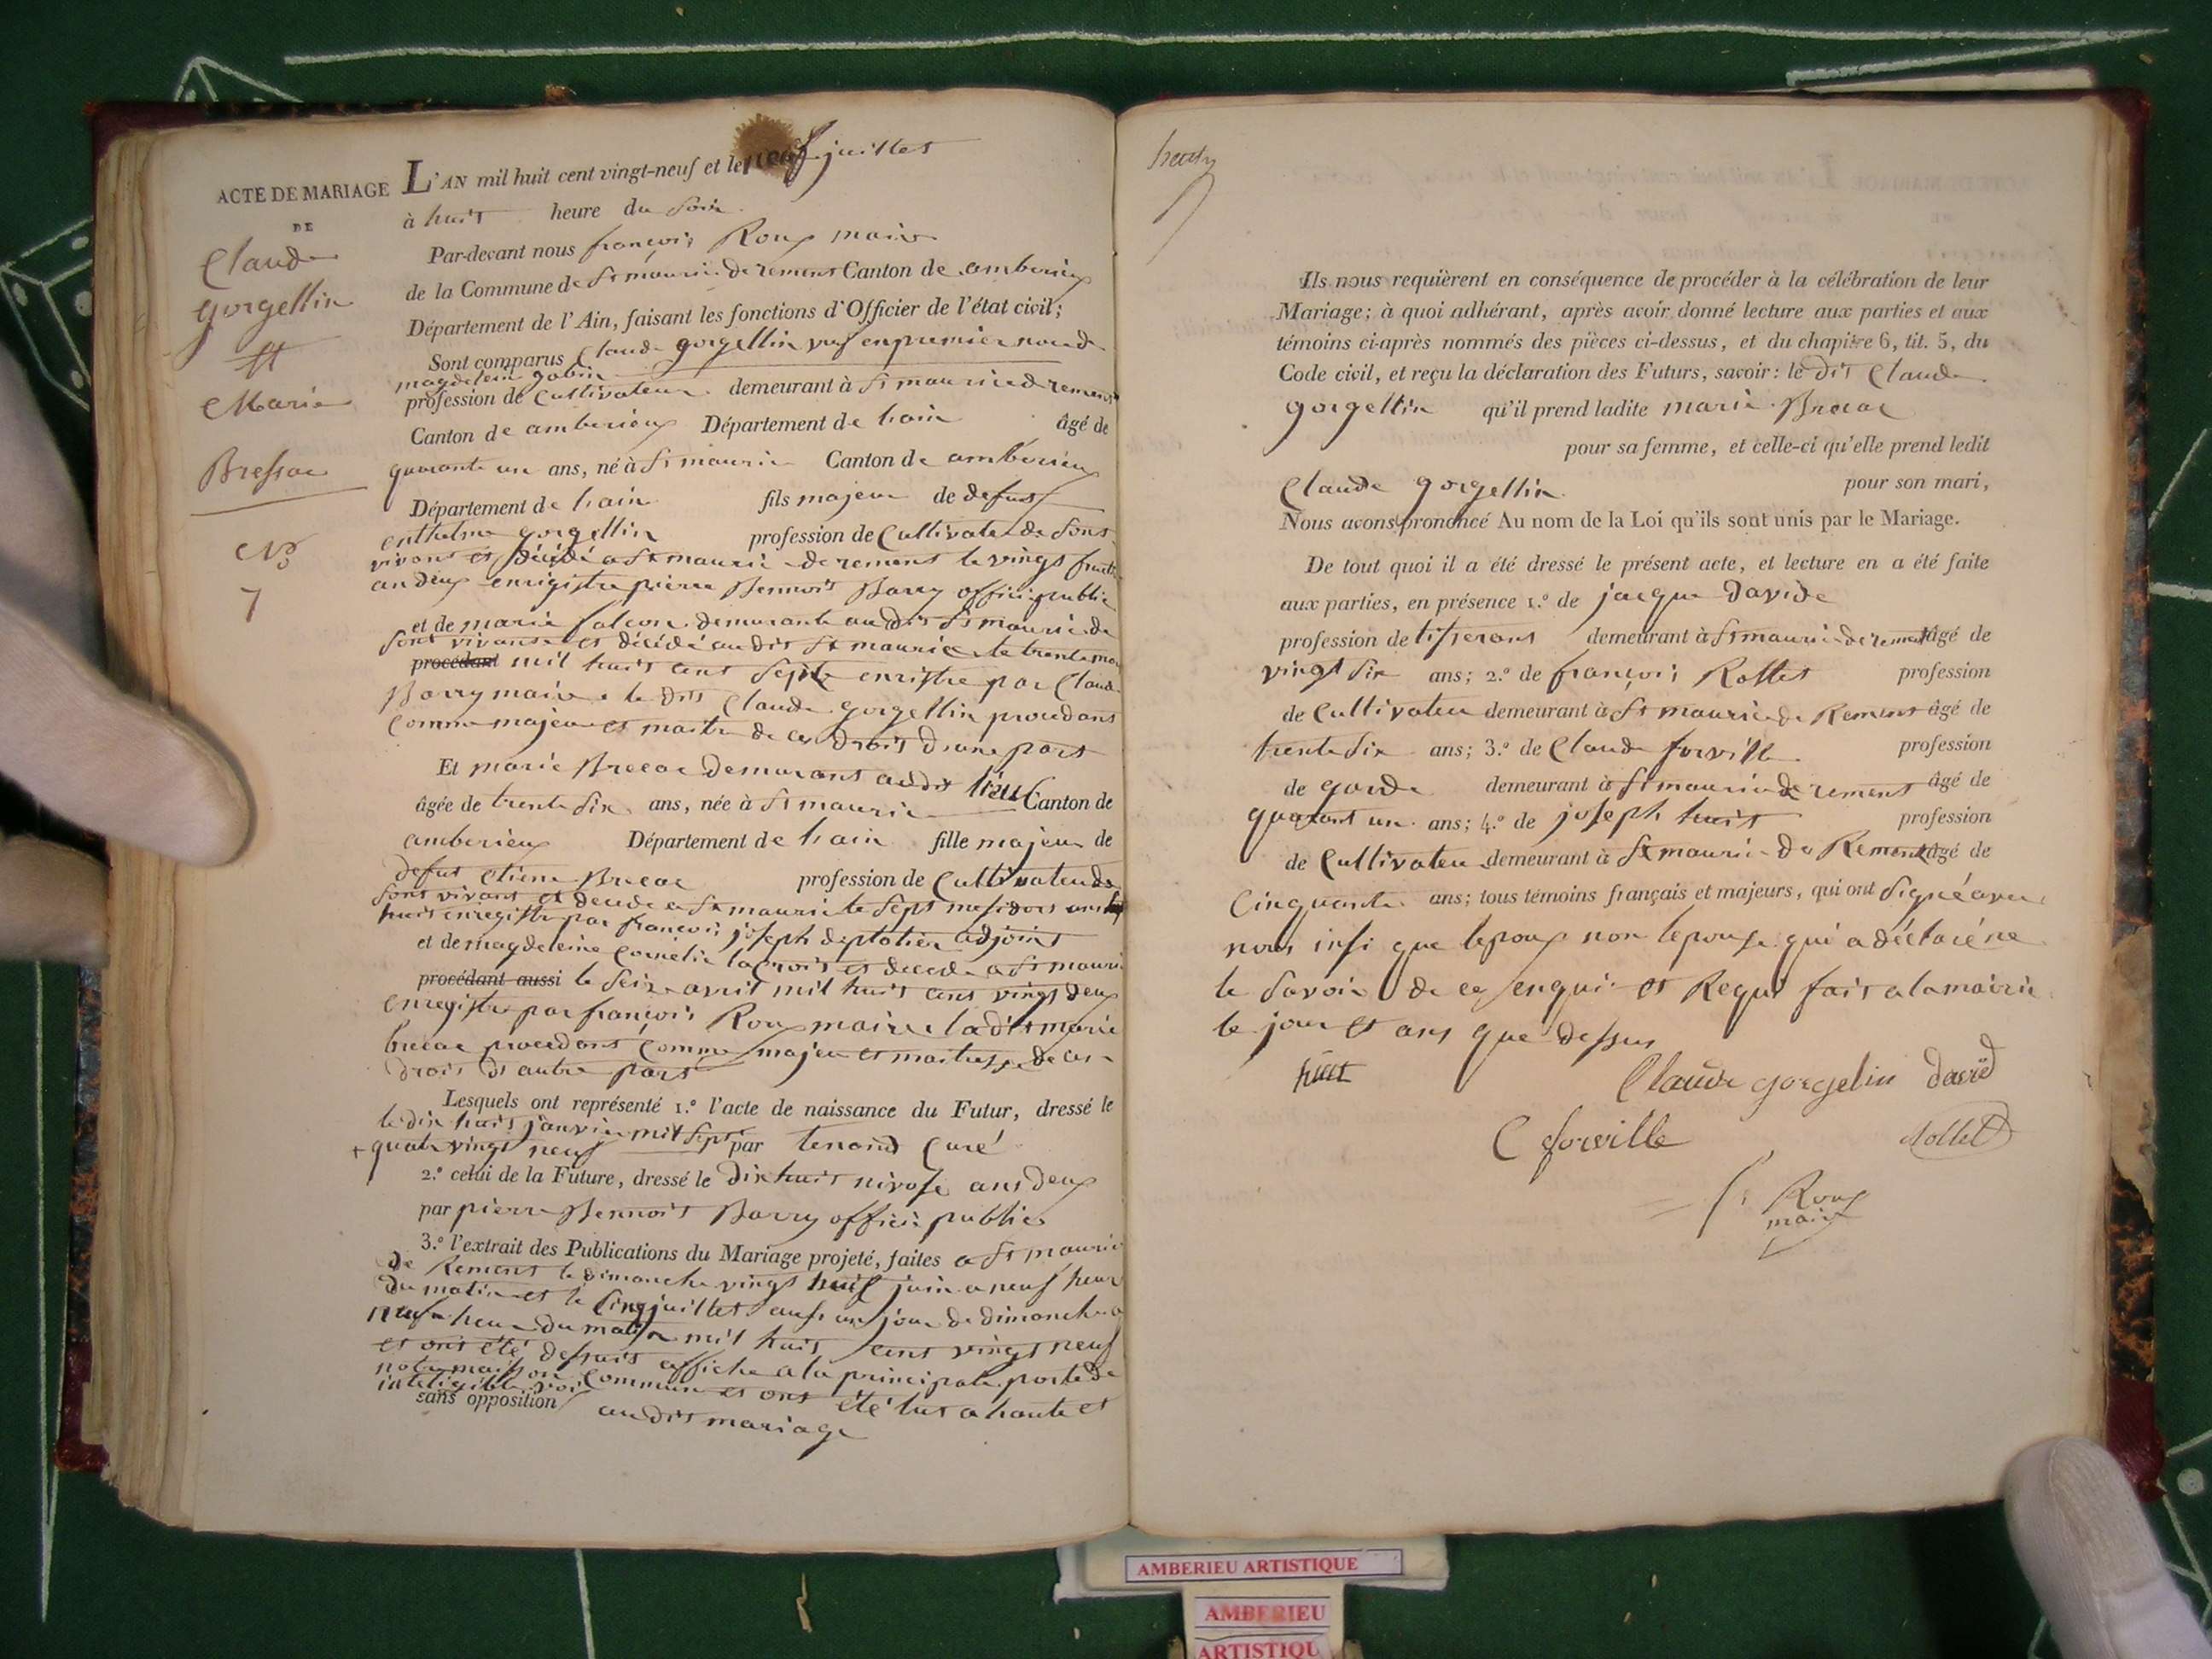 ACTE DE MARIAGE
DE
Claude
gorgellin
et
Marie
Bressac
No
7
L'AN mil huit cent vingt-neuf et le neuf juillet
à huit heure du soir
Par-devant nous françois Roux maire
de la Commune de St mauric de rement Canton de amberieux
Département de l'Ain, faisant les fonctions d'Officier de l'état civil;
Sont comparus Claude gorgellin vuf en premier noce de
magdelein gobin
profession de Cultivateur demeurant à St maurice de rement
Canton de amberieux Département de lain âgé de
quarante un ans, né à St mauric Canton de amberieux
Département de lain fils majeur de defunt
enthelme gorgellin profession de Cultivateu de sont
vivant et décédé a St mauric de rement le vingt
an deux enrigistre pierre Bennoit Barry offici public
et de marie falcon demurante au dit St mauric de
sont vivante et décédé au dit St mauric le trente mai
procédant mil huit cent sept enristre par Claude
Barry maire le dit Claude gorgellin procedant
comme majeur et maitre de ces droit d'une part
Et marie Brecac demurant audit lieu Canton de
âgée de trente six ans, née à St mauric
amberieux Département de lain fille majeur de
defut etiene Brecac profession de Cultivateu de
sont vivant et decede a St mauric le sept mesidor an
huit enregistre par francois joseph deplatier adjoint
et de magdeleine Cornelie lacroix et decede a St mauric
procédant aussi le seize avril mil huit cent vingt deux
enregistre par françois Roux maire la dit marie
brecac procedant comme majeu et maitresse de ces
droit d'autre part
Lesquels ont représenté 1.º l'acte de naissance du Futur, dressé le
le dix huit janvier mil sept
+ quatre vingt neuf par tenand Curé
2.º celui de la Future, dressé le dix huit nivose ans deux
par pierre Bennoit Barry officie public
3.º l'extrait des Publications du Mariage projeté, faites a St mauric
de Rement le dimanche vingt huit juin a neuf heur
du matin et le Cinq juillet ausi un jour de dimanche a
neuf heur du matin mil huit cent vingt neuf
et ont été desuit affiche a la principale porte de
notre maison commune et ont été lut a haute et
inteligible voi
sans opposition au dit mariage
Ils nous requièrent en conséquence de procéder à la célébration de leur
Mariage; à quoi adhérant, après avoir donné lecture aux parties et aux
témoins ci-après nommés des pièces ci-dessus, et du chapitre 6, tit. 5, du
Code civil, et reçu la déclaration des Futurs, savoir: le dit Claude
gorgellin qu'il prend ladite marie Brecac
pour sa femme, et celle-ci qu'elle prend ledit
Claude gorgellin pour son mari,
Nous avons prononcé Au nom de la Loi qu'ils sont unis par le Mariage.
De tout quoi il a été dressé le présent acte, et lecture en a été faite
aux parties, en présence 1.º de jacque davide
profession de tisserant demeurant à St mauric de rement âgé de
vingt six ans; 2.º de françois Rollet profession
de Cultivateu demeurant à St mauric de Rement âgé de
trente six ans; 3.º de Claude forville profession
de garde demeurant à St mauric de rement âgé de
quarant un ans; 4.º de joseph huit profession
de Cultivateu demeurant à St mauric de Rement âgé de
Cinquante ans; tous témoins français et majeurs, qui ont signé avec
nous insi que lepoux non lepouse qui a déclaré ne
le savoir de ce enqui et Requi fait a la mairie
le jour et ans que dessus
huit Claude gorgelin david
C forville Rollet
f Roux
maire
AMBERIEU ARTISTIQUE
AMBERIEU
ARTISTIQU